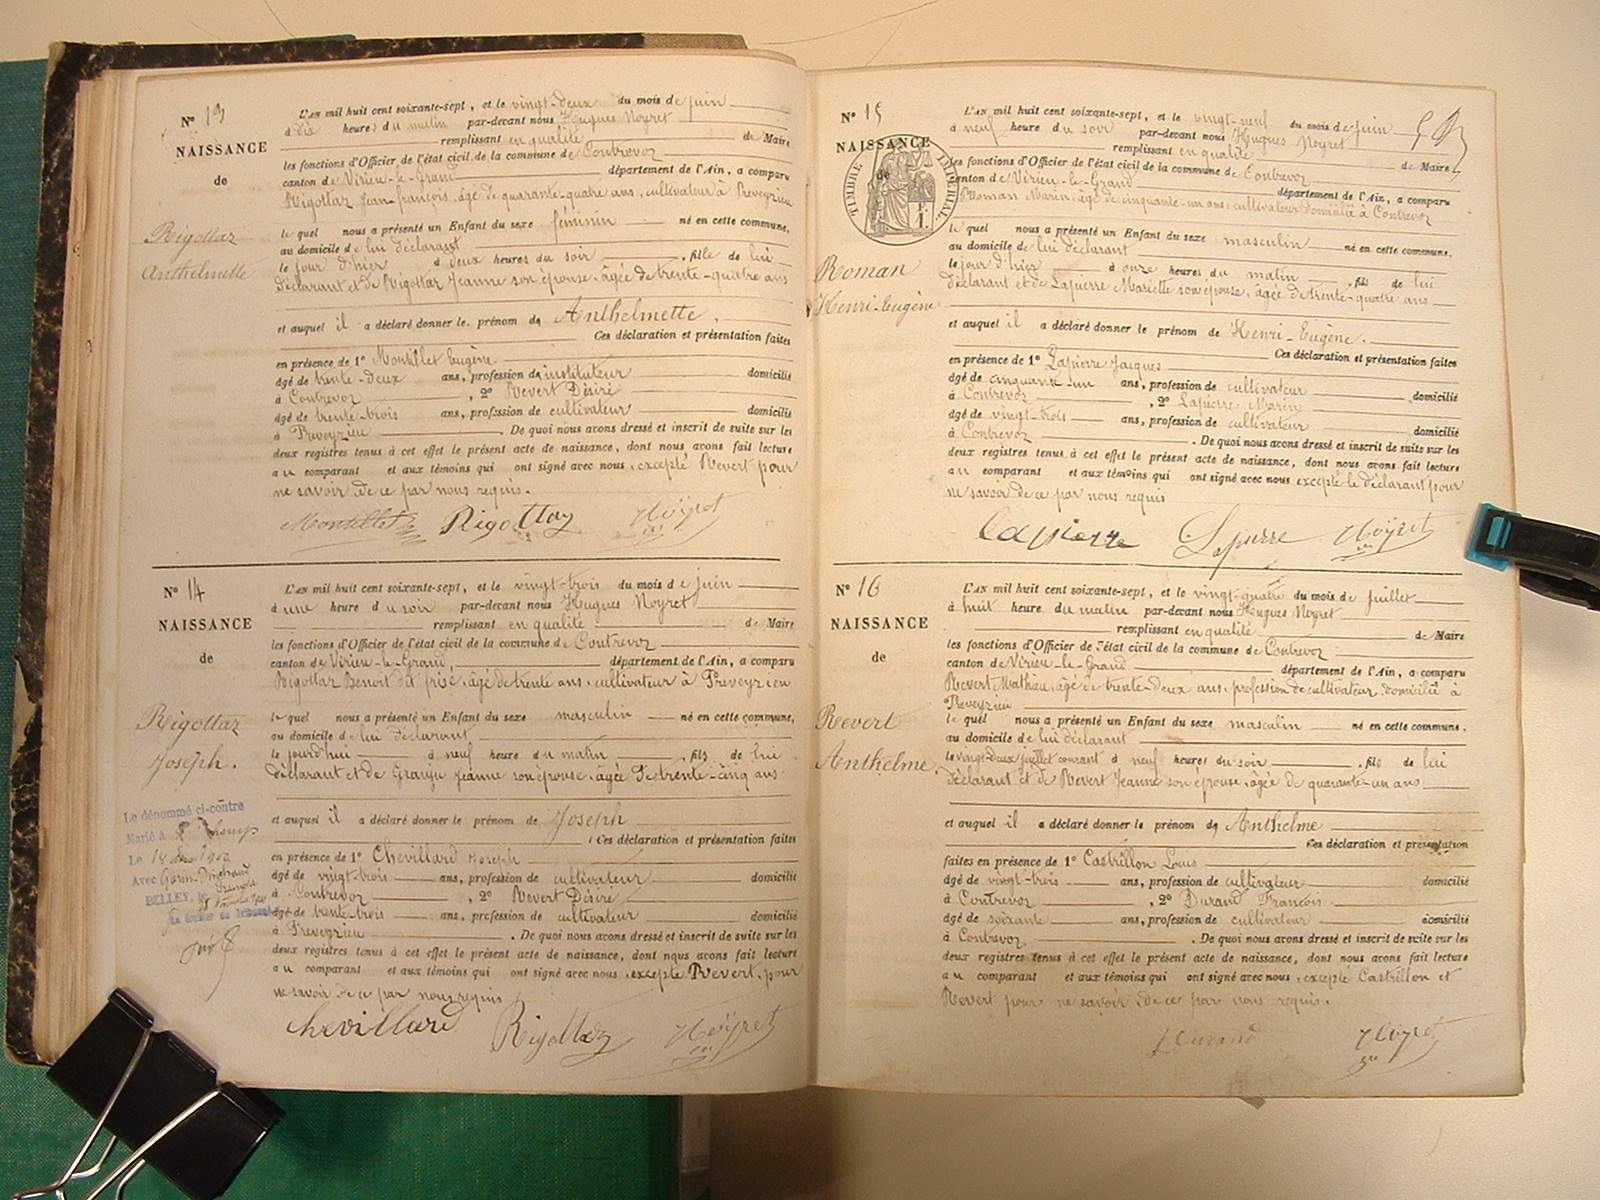 N° 13
NAISSANCE
de
Rigottaz
Anthelmette
L'AN mil huit cent soixante-sept, et le vingt-deux du mois de juin
à dix heures du matin par-devant nous Hugues Noyret
remplissant en qualité de Maire
les fonctions d'Officier de l'état civil de la commune de Contrevoz
canton de Virieu-le-Grand département de l'Ain, a comparu
Rigottaz Jean-françois, âgé de quarante-quatre ans, cultivateur à Preveyrieu
le quel nous a présenté un Enfant du sexe féminin né en cette commune,
au domicile de lui déclarant
le jour d'hier à deux heures du soir, fille de lui
déclarant et de Rigottaz Jeanne son épouse, âgée de trente-quatre ans
et auquel il a déclaré donner le prénom de Anthelmette.
Ces déclaration et présentation faites
en présence de 1° Montillet Eugène
âgé de trente-deux ans, profession d'instituteur domicilié
à Contrevoz, 2° Revert Désiré
âgé de trente-trois ans, profession de cultivateur domicilié
à Preveyrieu. De quoi nous avons dressé et inscrit de suite sur les
deux registres tenus à cet effet le présent acte de naissance, dont nous avons fait lecture
au comparant et aux témoins qui ont signé avec nous, excepté Revert pour
ne savoir de ce par nous requis.
Montillet Rigottaz Noyret
N° 14
NAISSANCE
de
Rigottaz
Joseph.
L'AN mil huit cent soixante-sept, et le vingt-trois du mois de juin
à une heure du soir par-devant nous Hugues Noyret
remplissant en qualité de Maire
les fonctions d'Officier de l'état civil de la commune de Contrevoz
canton de Virieu-le-Grand, département de l'Ain, a comparu
Rigottaz Benoit dit frisé, âgé de trente ans, cultivateur à Preveyrieu
le quel nous a présenté un Enfant du sexe masculin né en cette commune,
au domicile de lui déclarant
le jourd'hui à neuf heure du matin, fils de lui
déclarant et de Granju Jeanne son épouse, âgée de trente-cinq ans
et auquel il a déclaré donner le prénom de Joseph
Ces déclaration et présentation faites
en présence de 1° Chevillard Joseph
âgé de vingt-trois ans, profession de cultivateur domicilié
à Contrevoz, 2° Revert Désiré
âgé de trente-trois ans, profession de cultivateur domicilié
à Preveyrieu. De quoi nous avons dressé et inscrit de suite sur les
deux registres tenus à cet effet le présent acte de naissance, dont nous avons fait lecture
au comparant et aux témoins qui ont signé avec nous, excepté Revert, pour
ne savoir de ce par nous requis
Chevillard Rigottaz Noyret
Le dénommé ci-contre
Marié à
Le 14
Avec
BELLEY, le
Le Greffier du Tribunal
N° 15
NAISSANCE
de
TIMBRE IMPERIAL
Roman
Henri-Eugène
L'AN mil huit cent soixante-sept, et le vingt-neuf du mois de juin
à neuf heure du soir par-devant nous Hugues Noyret
remplissant en qualité de Maire
les fonctions d'Officier de l'état civil de la commune de Contrevoz
canton de Virieu-le-Grand département de l'Ain, a comparu
Roman Marin, âgé de cinquante-un ans, cultivateur domicilié à Contrevoz
le quel nous a présenté un Enfant du sexe masculin né en cette commune,
au domicile de lui déclarant
le jour d'hier à onze heures du matin, fils de lui
déclarant et de Lapierre Mariette son épouse, âgée de trente-quatre ans
et auquel il a déclaré donner le prénom de Henri-Eugène.
Ces déclaration et présentation faites
en présence de 1° Lapierre Jacques
âgé de cinquante-un ans, profession de cultivateur domicilié
à Contrevoz, 2° Lapierre Marin
âgé de vingt-trois ans, profession de cultivateur domicilié
à Contrevoz. De quoi nous avons dressé et inscrit de suite sur les
deux registres tenus à cet effet le présent acte de naissance, dont nous avons fait lecture
au comparant et aux témoins qui ont signé avec nous excepté le déclarant pour
ne savoir de ce par nous requis
Lapierre Lapierre Noyret
N° 16
NAISSANCE
de
Revert
Anthelme.
L'AN mil huit cent soixante-sept, et le vingt-quatre du mois de juillet
à huit heure du matin par-devant nous Hugues Noyret
remplissant en qualité de Maire
les fonctions d'Officier de l'état civil de la commune de Contrevoz
canton de Virieu-le-Grand département de l'Ain, a comparu
Revert Mathieu, âgé de trente-deux ans, profession de cultivateur, domicilié à
Preveyrieu
le quel nous a présenté un Enfant du sexe masculin né en cette commune,
au domicile de lui déclarant
le vingt-deux juillet courant à neuf heures du soir, fils de lui
déclarant et de Revert Jeanne son épouse, âgée de quarante-un ans
et auquel il a déclaré donner le prénom de Anthelme
Ces déclaration et présentation
faites en présence de 1° Castrillon Louis
âgé de vingt-trois ans, profession de cultivateur domicilié
à Contrevoz, 2° Durand François
âgé de soixante ans, profession de cultivateur domicilié
à Contrevoz. De quoi nous avons dressé et inscrit de suite sur les
deux registres tenus à cet effet le présent acte de naissance, dont nous avons fait lecture
au comparant et aux témoins qui ont signé avec nous, excepté Castrillon et
Revert pour ne savoir de ce par nous requis.
Durand Noyret